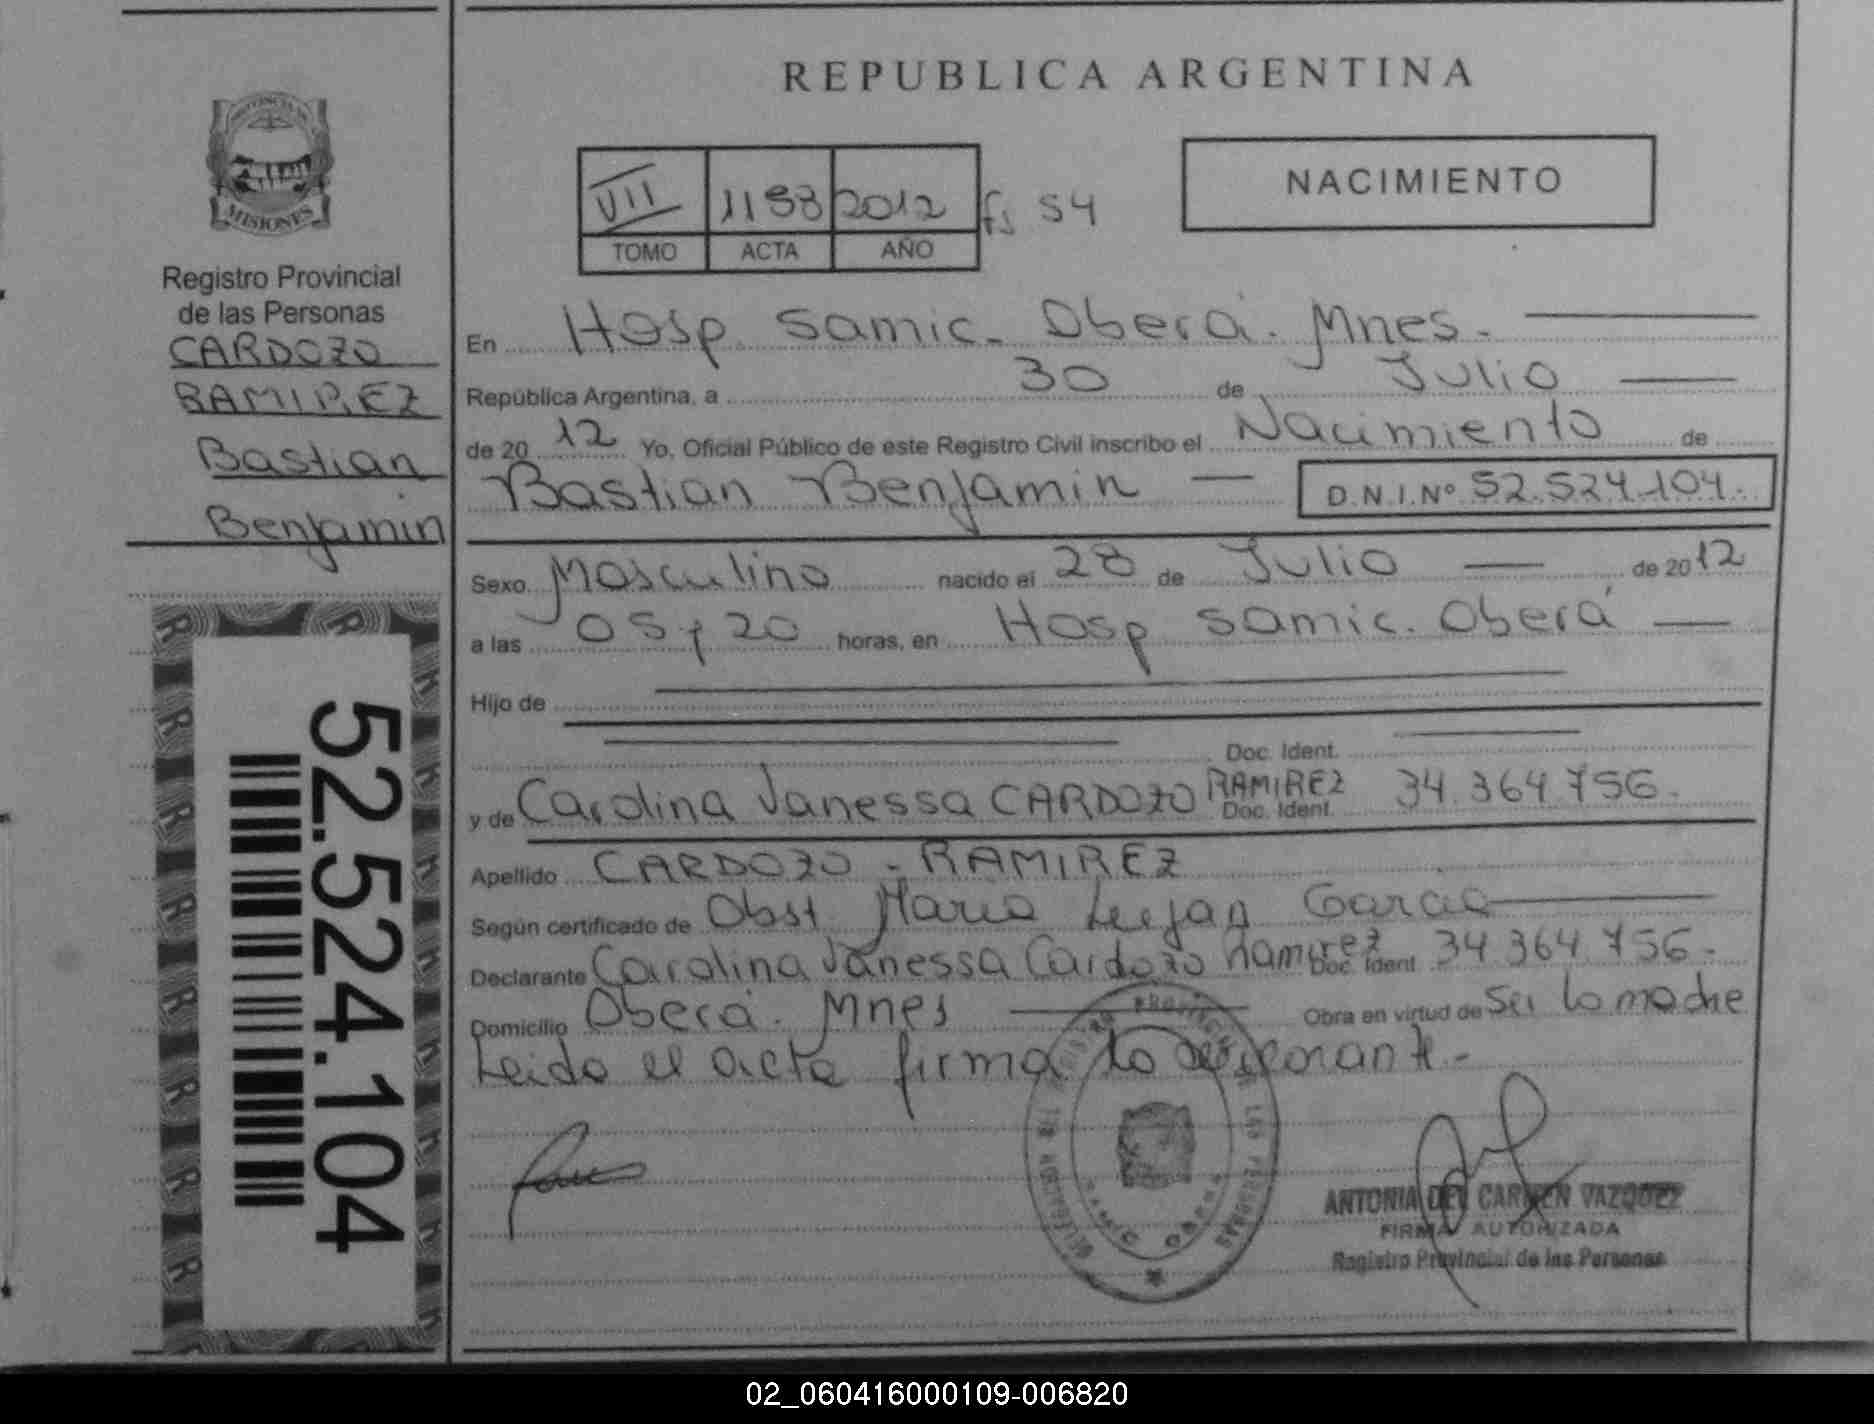 REPUBLICA ARGENTINA
PROVINCIA DE
MISIONES
Registro Provincial
de las Personas
CARDOZO
RAMIREZ
Bastian
Benjamin
52.524.104
VII 1198 2012 fs 54
TOMO ACTA AÑO
NACIMIENTO
En Hosp Samic. Oberá. Mnes.
República Argentina, a 30 de Julio
de 2012 Yo, Oficial Público de este Registro Civil inscribo el Nacimiento de
Bastian Benjamin D.N.I.Nº 52.524.104.
Sexo Masculino nacido el 28 de Julio de 2012
a las 05 y 20 horas, en Hosp Samic. Oberá
Hijo de
Doc. Ident.
y de Carolina Vanessa CARDOZO RAMIREZ Doc. Ident. 34.364.756.
Apellido CARDOZO - RAMIREZ
Según certificado de Obst Maria Lujan Garcia
Declarante Carolina Vanessa Cardozo Ramirez Doc. Ident. 34.364.756.
Domicilio Oberá. Mnes Obra en virtud de Ser la madre
Leida el acta firma la declarante.
ANTONIA DEL CARMEN VAZQUEZ
FIRMA AUTORIZADA
Registro Provincial de las Personas
02_060416000109-006820